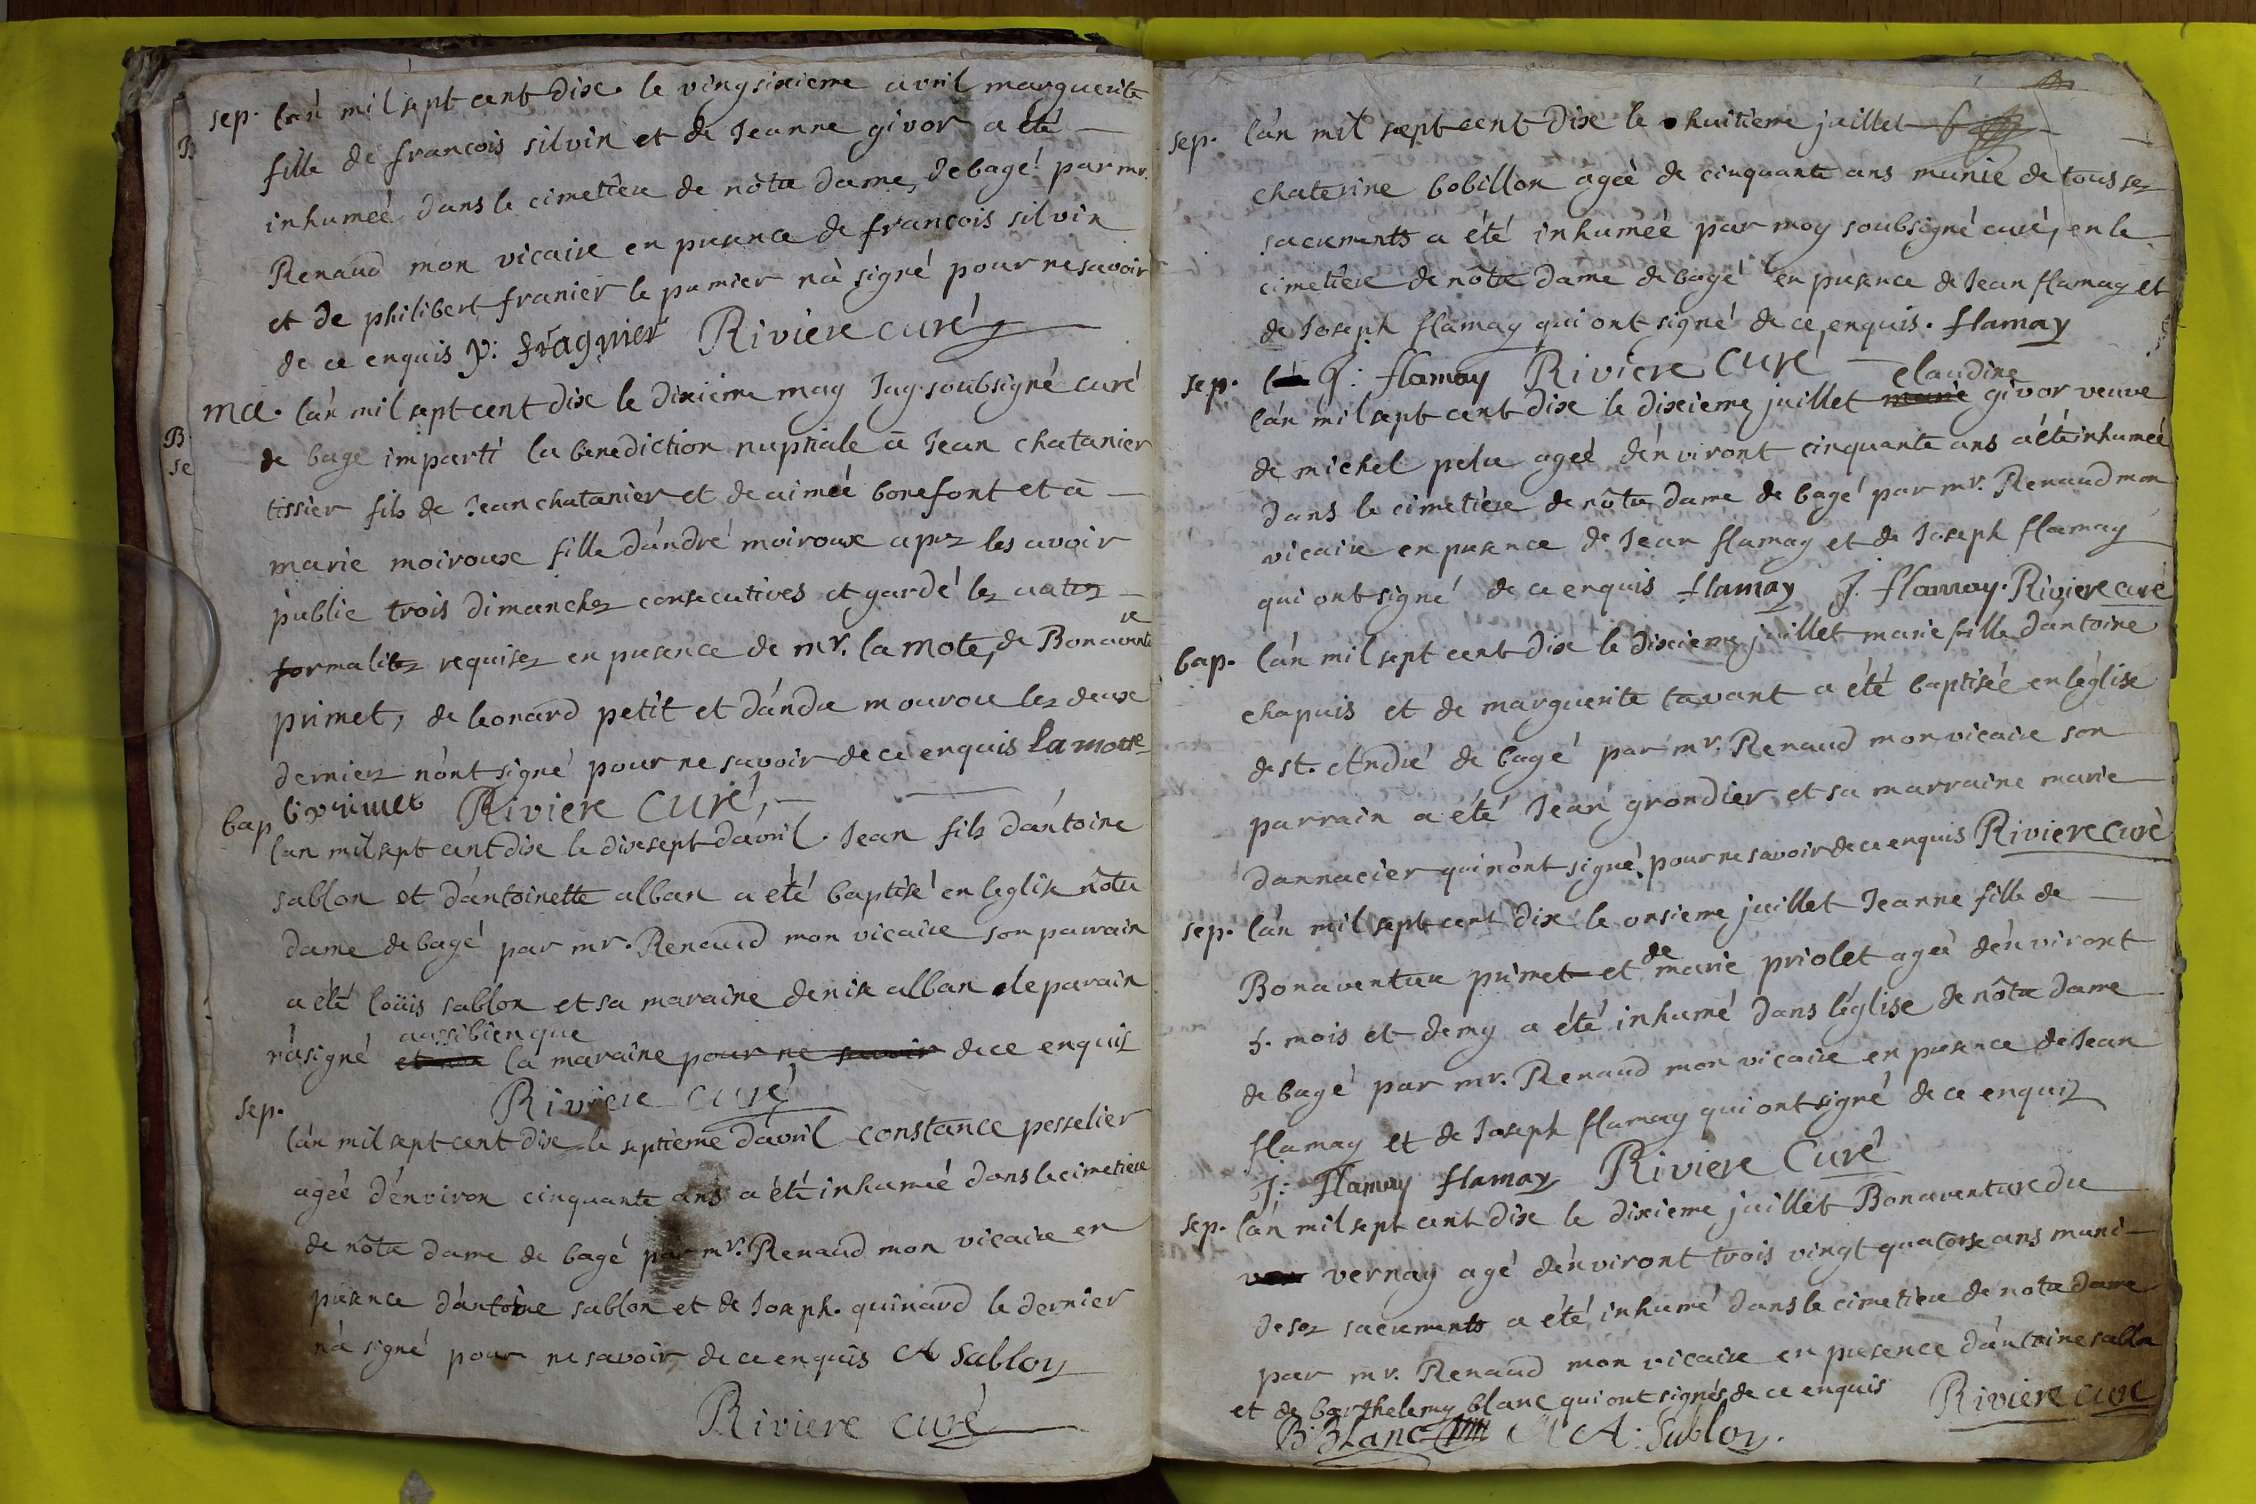 sep. l'an mil sept cent dix le vingsixieme avril marguerite
fille de francois silvin et de Jeanne givor a été
inhumeé dans le cimetiere de nôtre dame de bagé par mr.
Renaud mon vicaire en presence de francois silvin
et de philibert franier le premier n'a signé pour ne savoir
de ce enquis p: fragnier Riviere curé
ma. l'an mil sept cent dix le dixiéme may Jay soubsigné curé
de bage imparti la benediction nuptiale a Jean chatanier
tissier fils de Jean chatanier et de aimeé bonefont et a
marie moiroux fille d'andré moiroux aprez les avoir
publie trois dimanchez consecutives et gardé lez autez
formalitez requisez en presence de mr. la mote, de Bonaventure
primet, de leonard petit et d'andre mourou lez deux
derniez n'ont signé pour ne savoir de ce enquis Lamotte
b primet Riviere curé,
bap l'an mil sept cent dix le dixsept d'avril Jean fils d'antoine
sablon et d'antoinette alban a été baptisé en leglise nôtre
dame de bagé par mr. Renaud mon vicaire son parrain
a été loüis sablon et sa maraine denise alban le parain
n'a signé aussi bien que la maraine pour ne savoir de ce enquis
Riviere curé
sep. l'an mil sept cent dix le septieme d'avril constance pesselier
ageé d'environ cinquante ans a été inhumeé dans le cimetiere
de nôtre dame de bagé par mr. Renaud mon vicaire en
presence d'antoine sablon et de Joseph quinard le dernier
n'a signé pour ne savoir de ce enquis A Sablon
Riviere curé
sep. l'an mil sept cent dix le huitieme juillet
chaterine bobillon ageé de cinquante ans munie de tous sez
sacrements a été inhumeé par moy soubsigné curé, en le
cimetiere de nôtre dame de bagé en presence de Jean flamay et
de Joseph flamay qui ont signé de ce enquis. flamay
J: flamay Riviere curé
sep. l'an mil sept cent dix le dixieme juillet marie claudine givor veuve
de michel pelu ageé d'environt cinquante ans a été inhumeé
dans le cimetiere de nôtre dame de bagé par mr. Renaud mon
vicaire en presence de Jean flamay et de Joseph flamay
qui ont signé de ce enquis flamay J. flamay. Riviere curé
bap. l'an mil sept cent dix le dixieme juillet marie fille d'antoine
chapuis et de marguerite tavant a été baptiseé en léglise
de st. André de bagé par mr. Renaud mon vicaire son
parrain a été Jean grondier et sa marraine marie
dannacier qui n'ont signé pour ne savoir de ce enquis Riviere curé
sep. l'an mil sept cent dix le onsieme juillet Jeanne fille de
Bonaventure primet et de marie priolet ageé d'environt
5. mois et demy a été inhumé dans léglise de nôtre dame
de bagé par mr. Renaud mon vicaire en presence de Jean
flamay et de Joseph flamay qui ont signé de ce enquiz
J: flamay flamay Riviere curé
sep. l'an mil sept cent dix le dixieme juillet Bonaventure du
vernay agé d'environt trois vingt quatorse ans muni
de sez sacrements a été inhumé dans le cimetiere de notre dame
par mr. Renaud mon vicaire en presence d'antoine sablon
et de barthelemy blanc qui ont signés de ce enquis Riviere curé
B. Blanc A. Sablon.